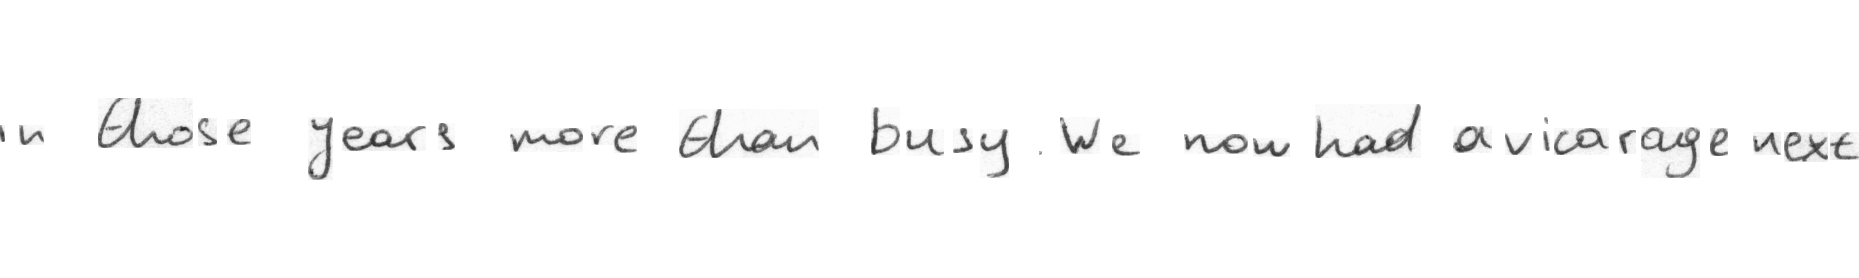 in those years more than busy. We now had a vicarage next